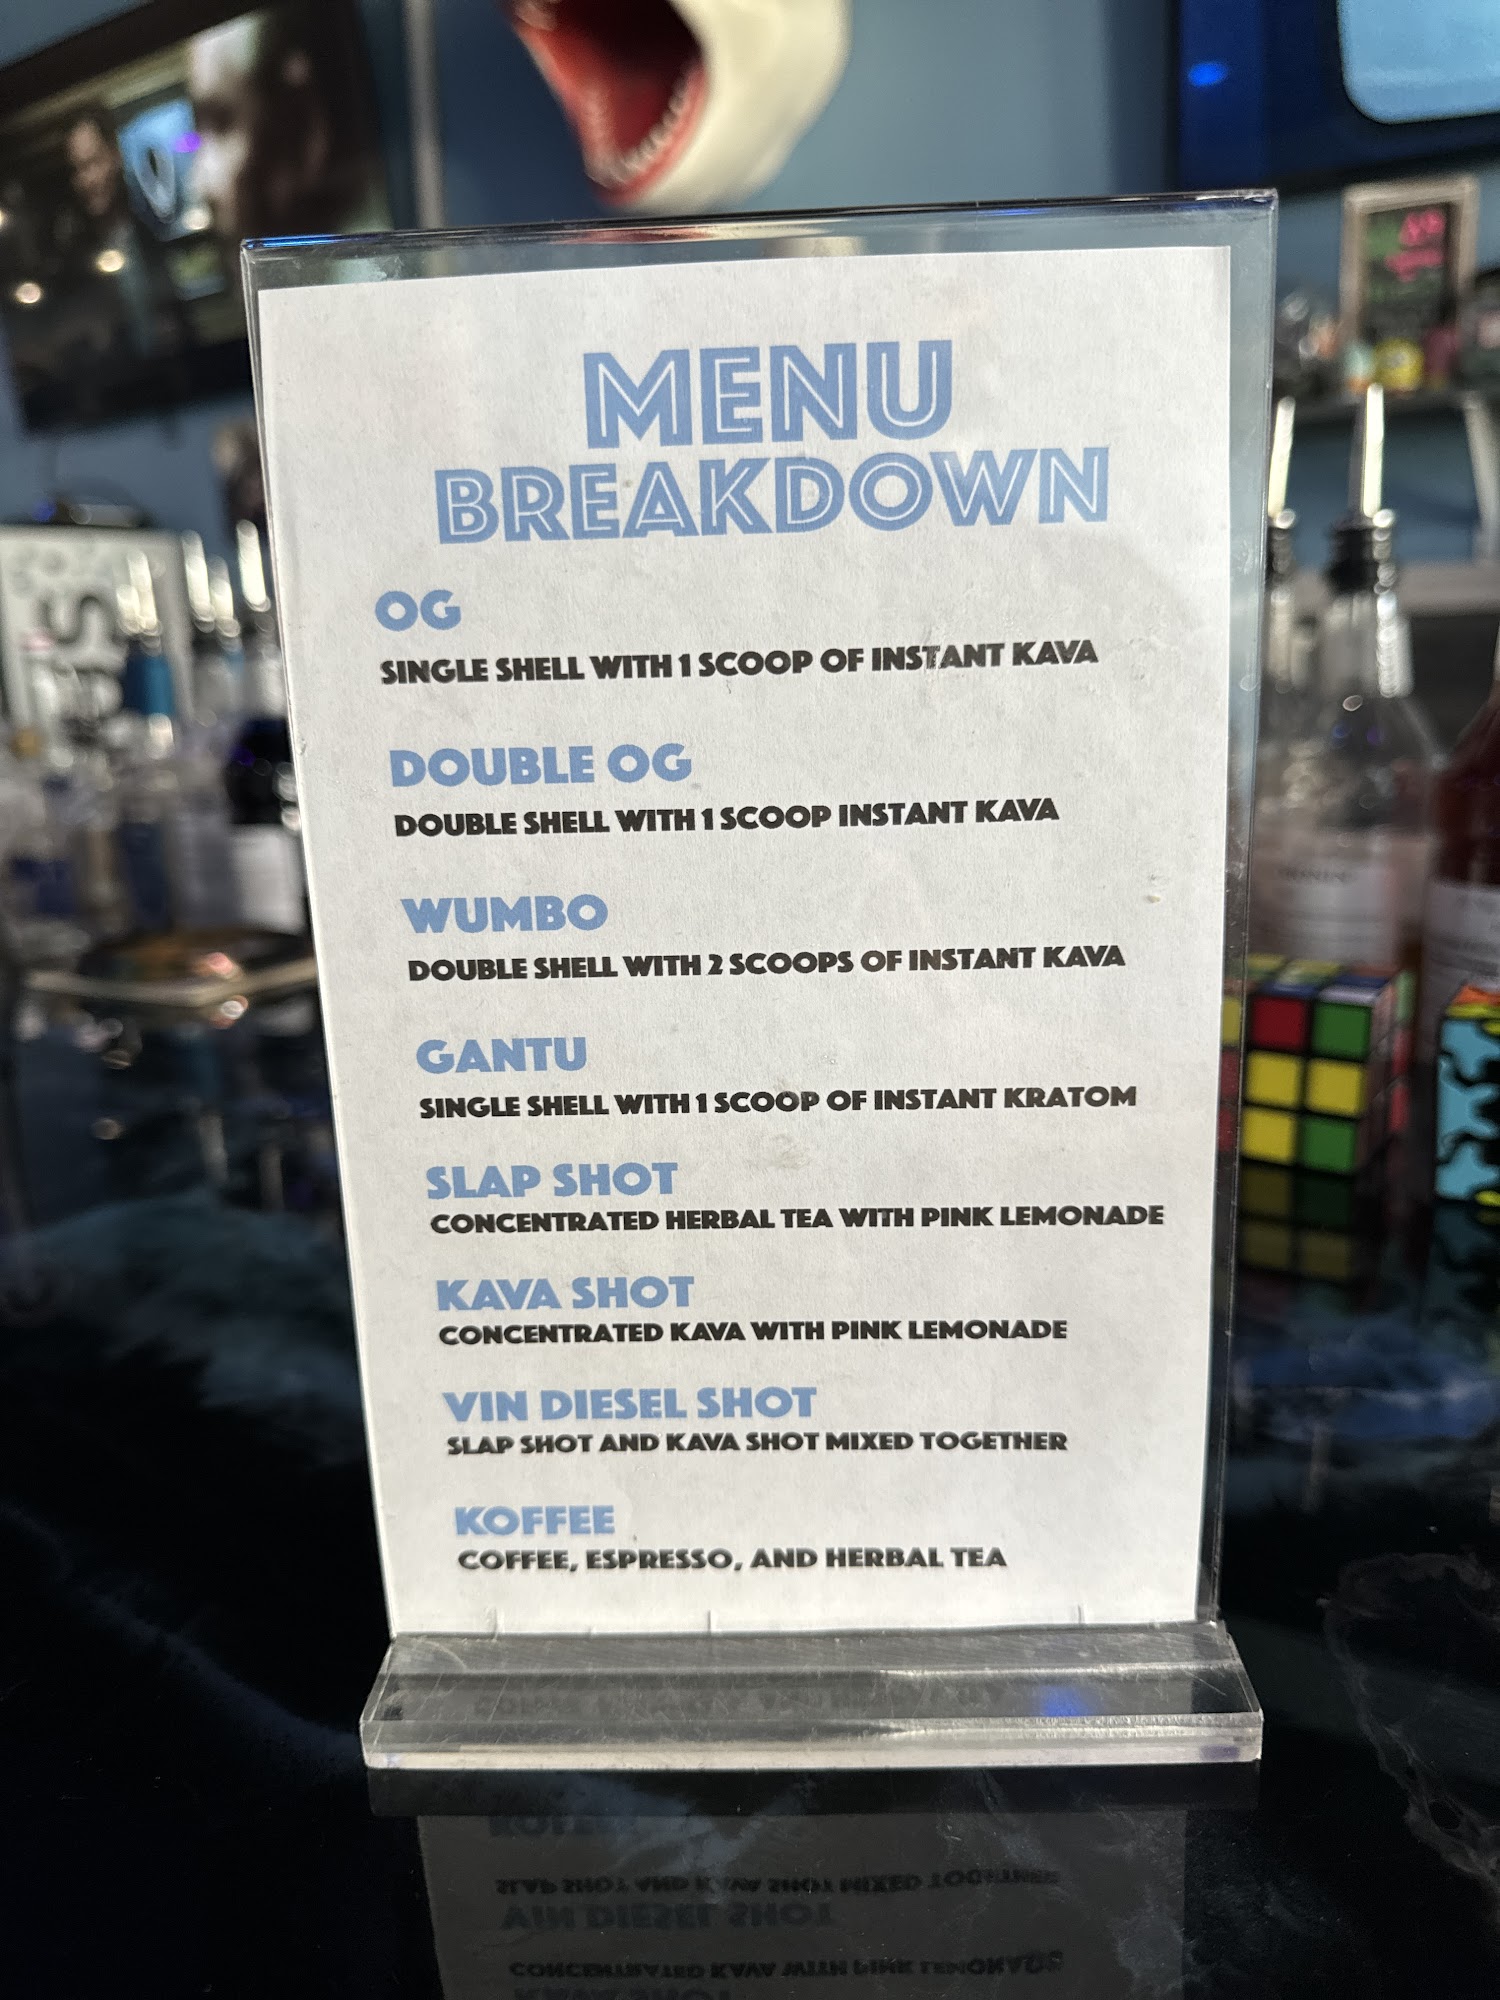 MENU
BREAKDOWN
OG
SINGLE SHELL WITH 1 SCOOP OF INSTANT KAVA
DOUBLE OG
DOUBLE SHELL WITH 1 SCOOP INSTANT KAVA
WUMBO
DOUBLE SHELL WITH 2 SCOOPS OF INSTANT KAVA
GANTU
SINGLE SHELL WITH 1 SCOOP OF INSTANT KRATOM
SLAP SHOT
CONCENTRATED HERBAL TEA WITH PINK LEMONADE
KAVA SHOT
CONCENTRATED KAVA WITH PINK LEMONADE
VIN DIESEL SHOT
SLAP SHOT AND KAVA SHOT MIXED TOGETHER
KOFFEE
COFFEE, ESPRESSO, AND HERBAL TEA